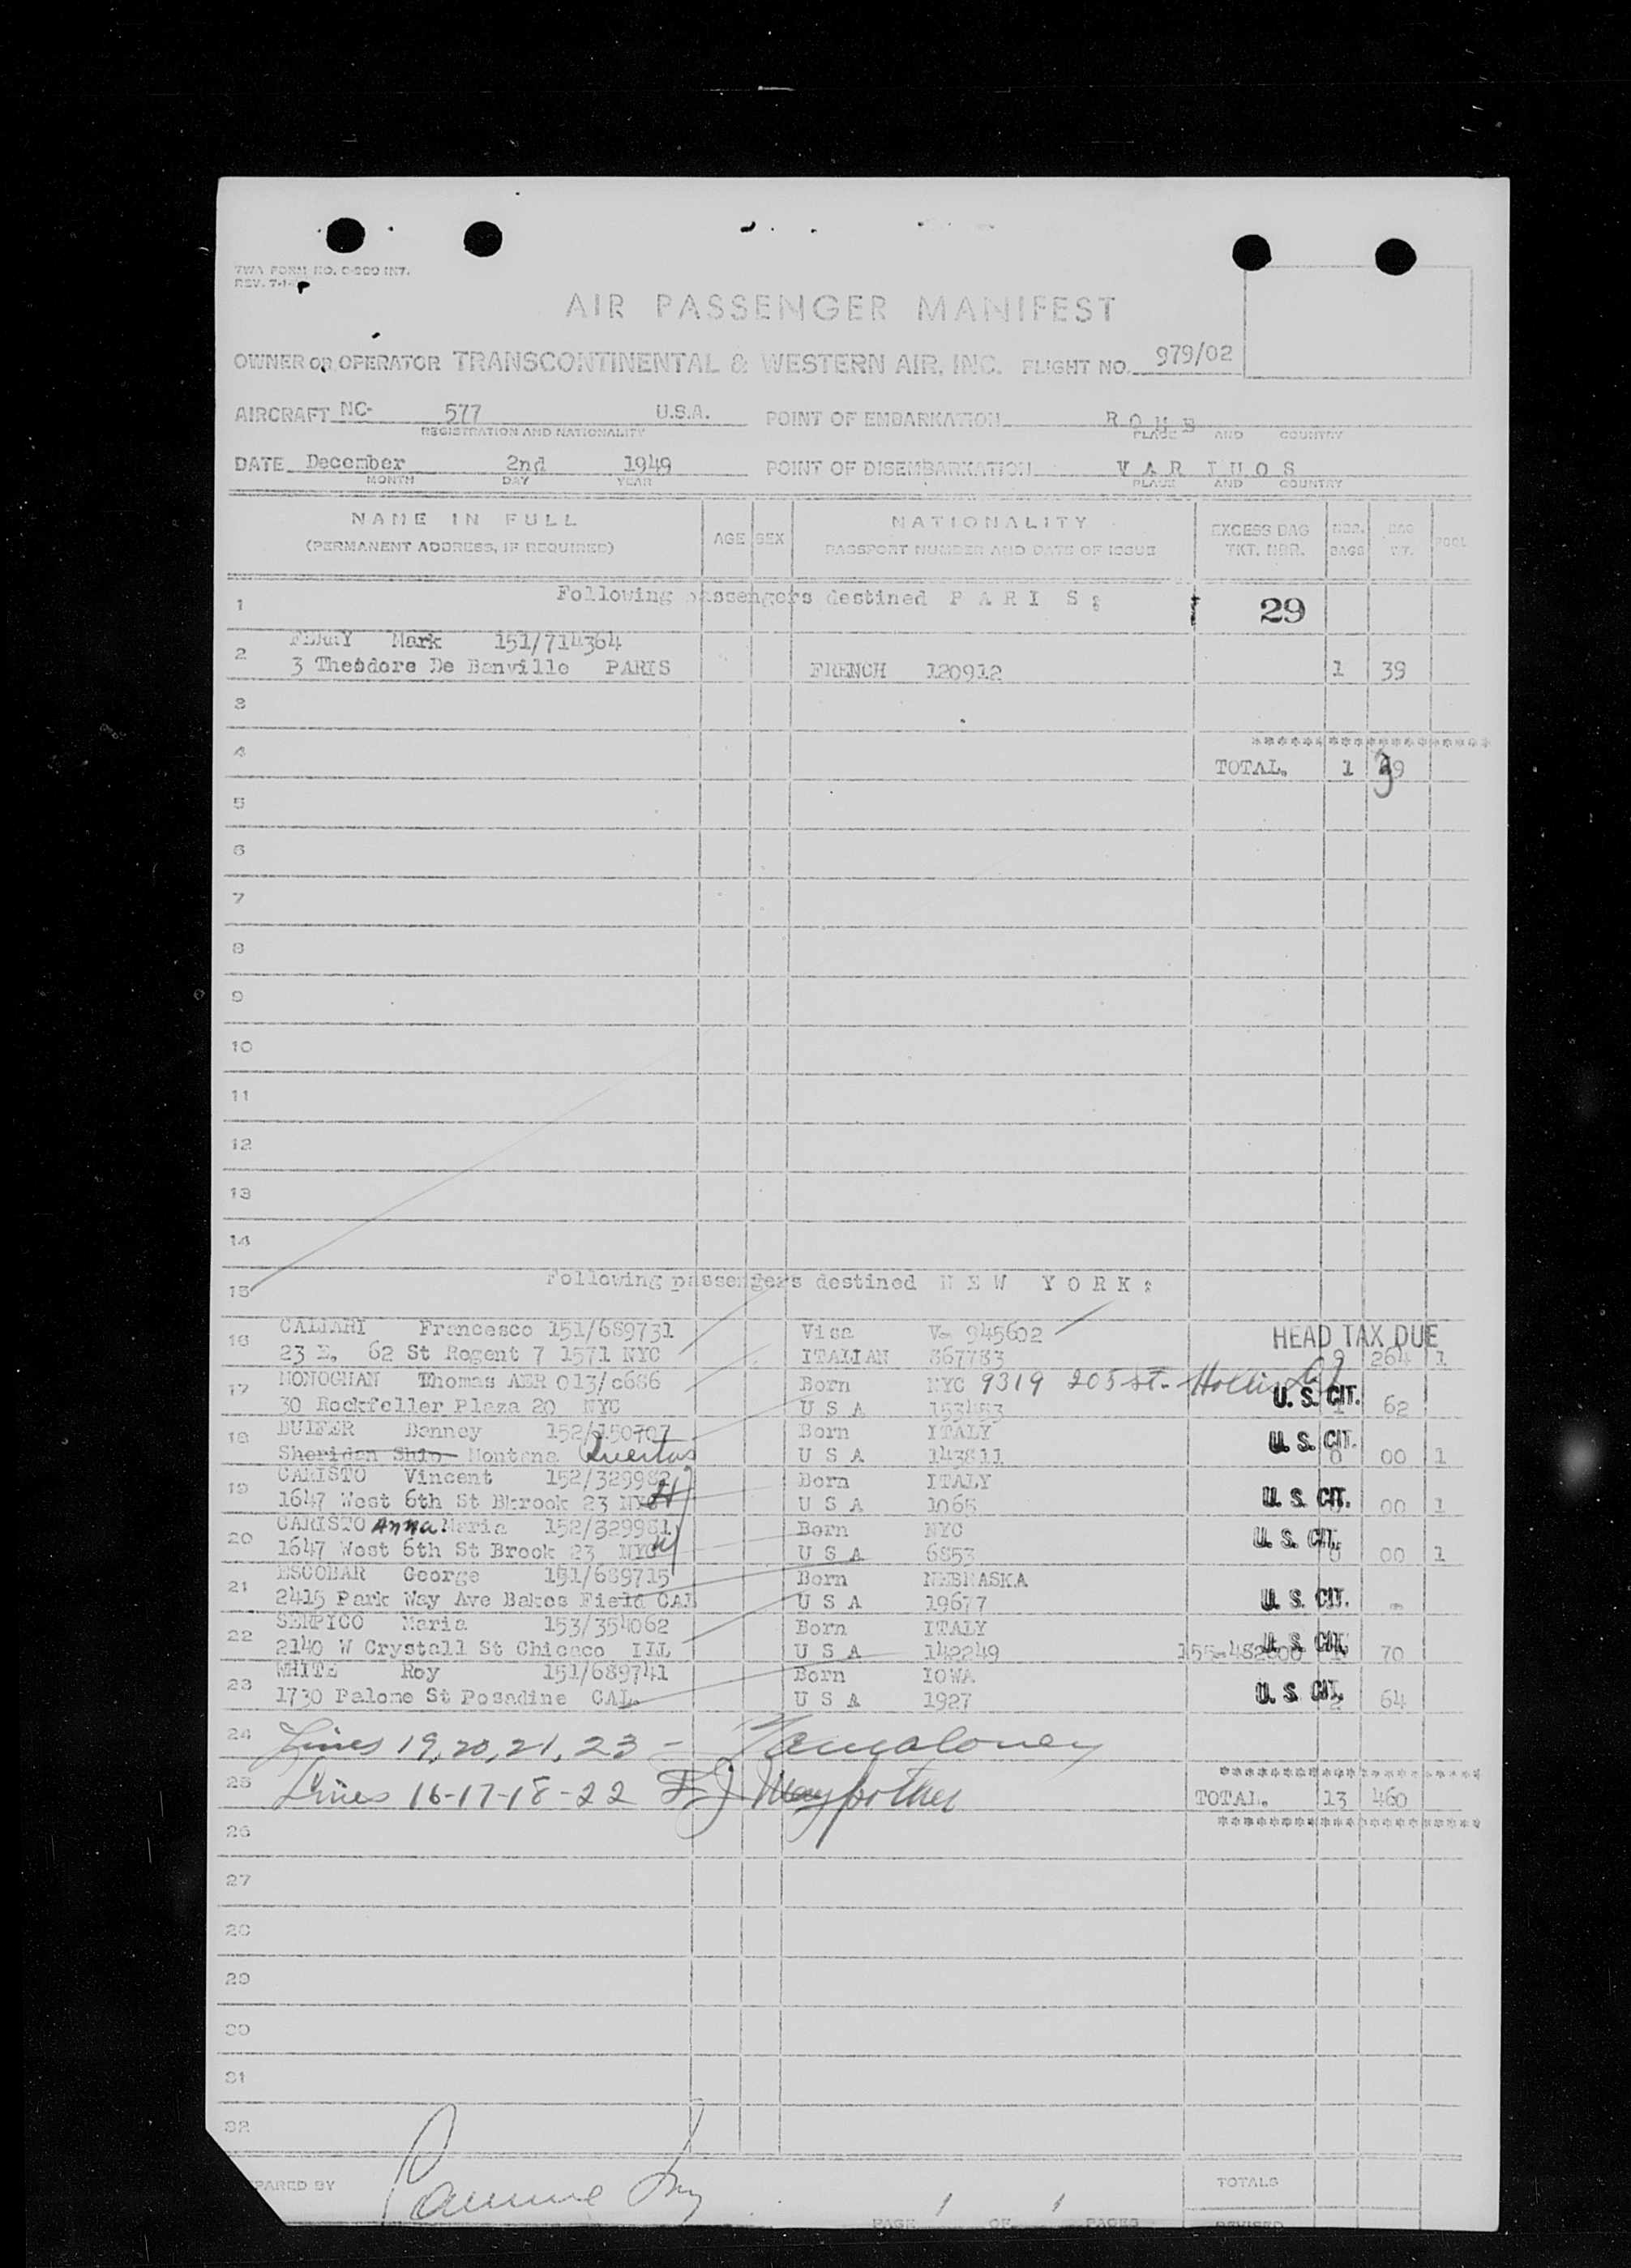 TWA FORM NO. C-200 INT.
REV. 7-1-
AIR PASSENGER MANIFEST
OWNER OR OPERATOR TRANSCONTINENTAL & WESTERN AIR, INC. FLIGHT NO. 979/02
AIRCRAFT NC- 577 U.S.A. POINT OF EMBARKATION R O M E
REGISTRATION AND NATIONALITY PLACE AND COUNTRY
DATE December 2nd 1949 POINT OF DISEMBARKATION V A R I U O S
MONTH DAY YEAR PLACE AND COUNTRY
NAME IN FULL AGE SEX NATIONALITY EXCESS BAG NBR. BAG POOL
(PERMANENT ADDRESS, IF REQUIRED) PASSPORT NUMBER AND DATE OF ISSUE TKT. NBR. BAGS WT.
1 Following passengers destined P A R I S : 29
FERRY Mark 151/714364
2 3 Theodore De Banville PARIS FRENCH 120912 1 39
3
4 ********************
TOTAL. 1 39
5
6
7
8
9
10
11
12
13
14
15 Following passengers destined N E W Y O R K :
16 CALIARI Francesco 151/689731 Visa V- 945602 HEAD TAX DUE
23 E, 62 St Regent 7 1571 NYC ITALIAN 867783 9 264 1
17 MONOGHAN Thomas AER 013/c686 Born NYC 9319 205 St. Hollis
30 Rockfeller Plaza 20 NYC U S A 153483 U. S. CIT. 1 62
18 BUIFER Banney 152/150707 Born ITALY U. S. CIT.
Sheridan Ship Montana U S A 143811 0 00 1
19 CARISTO Vincent 152/329982 Born ITALY
1647 West 6th St Bkrook 23 NYC U S A 1065 U. S. CIT. 00 1
20 CARISTO Anna Maria 152/329981 Born NYC U. S. CIT.
1647 West 6th St Brook 23 NYC U S A 6853 0 00 1
21 ESCOBAR George 151/689715 Born NEBRASKA
2415 Park Way Ave Bakes Field CAL U S A 19677 U. S. CIT. -
22 SERPICO Maria 153/354062 Born ITALY U. S. CIT.
2140 W Crystall St Chicaco ILL U S A 142249 155-482800 1 70
23 WHITE Roy 151/689741 Born IOWA
1730 Palome St Posadine CAL. U S A 1927 U. S. CIT. 2 64
24 Lines 19, 20, 21, 23 -
25 Lines 16-17-18-22 F J ********************
TOTAL. 13 460
26 ********************
27
28
29
30
31
32
PARED BY TOTALS
PAGE 1 OF 1 PAGES REVISED